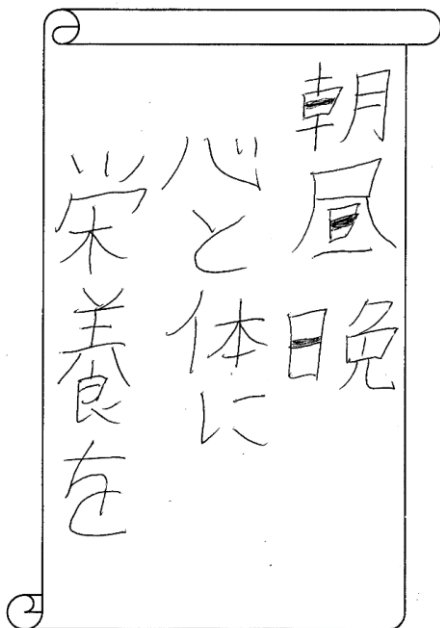 朝昼晩
心と体に
栄養を